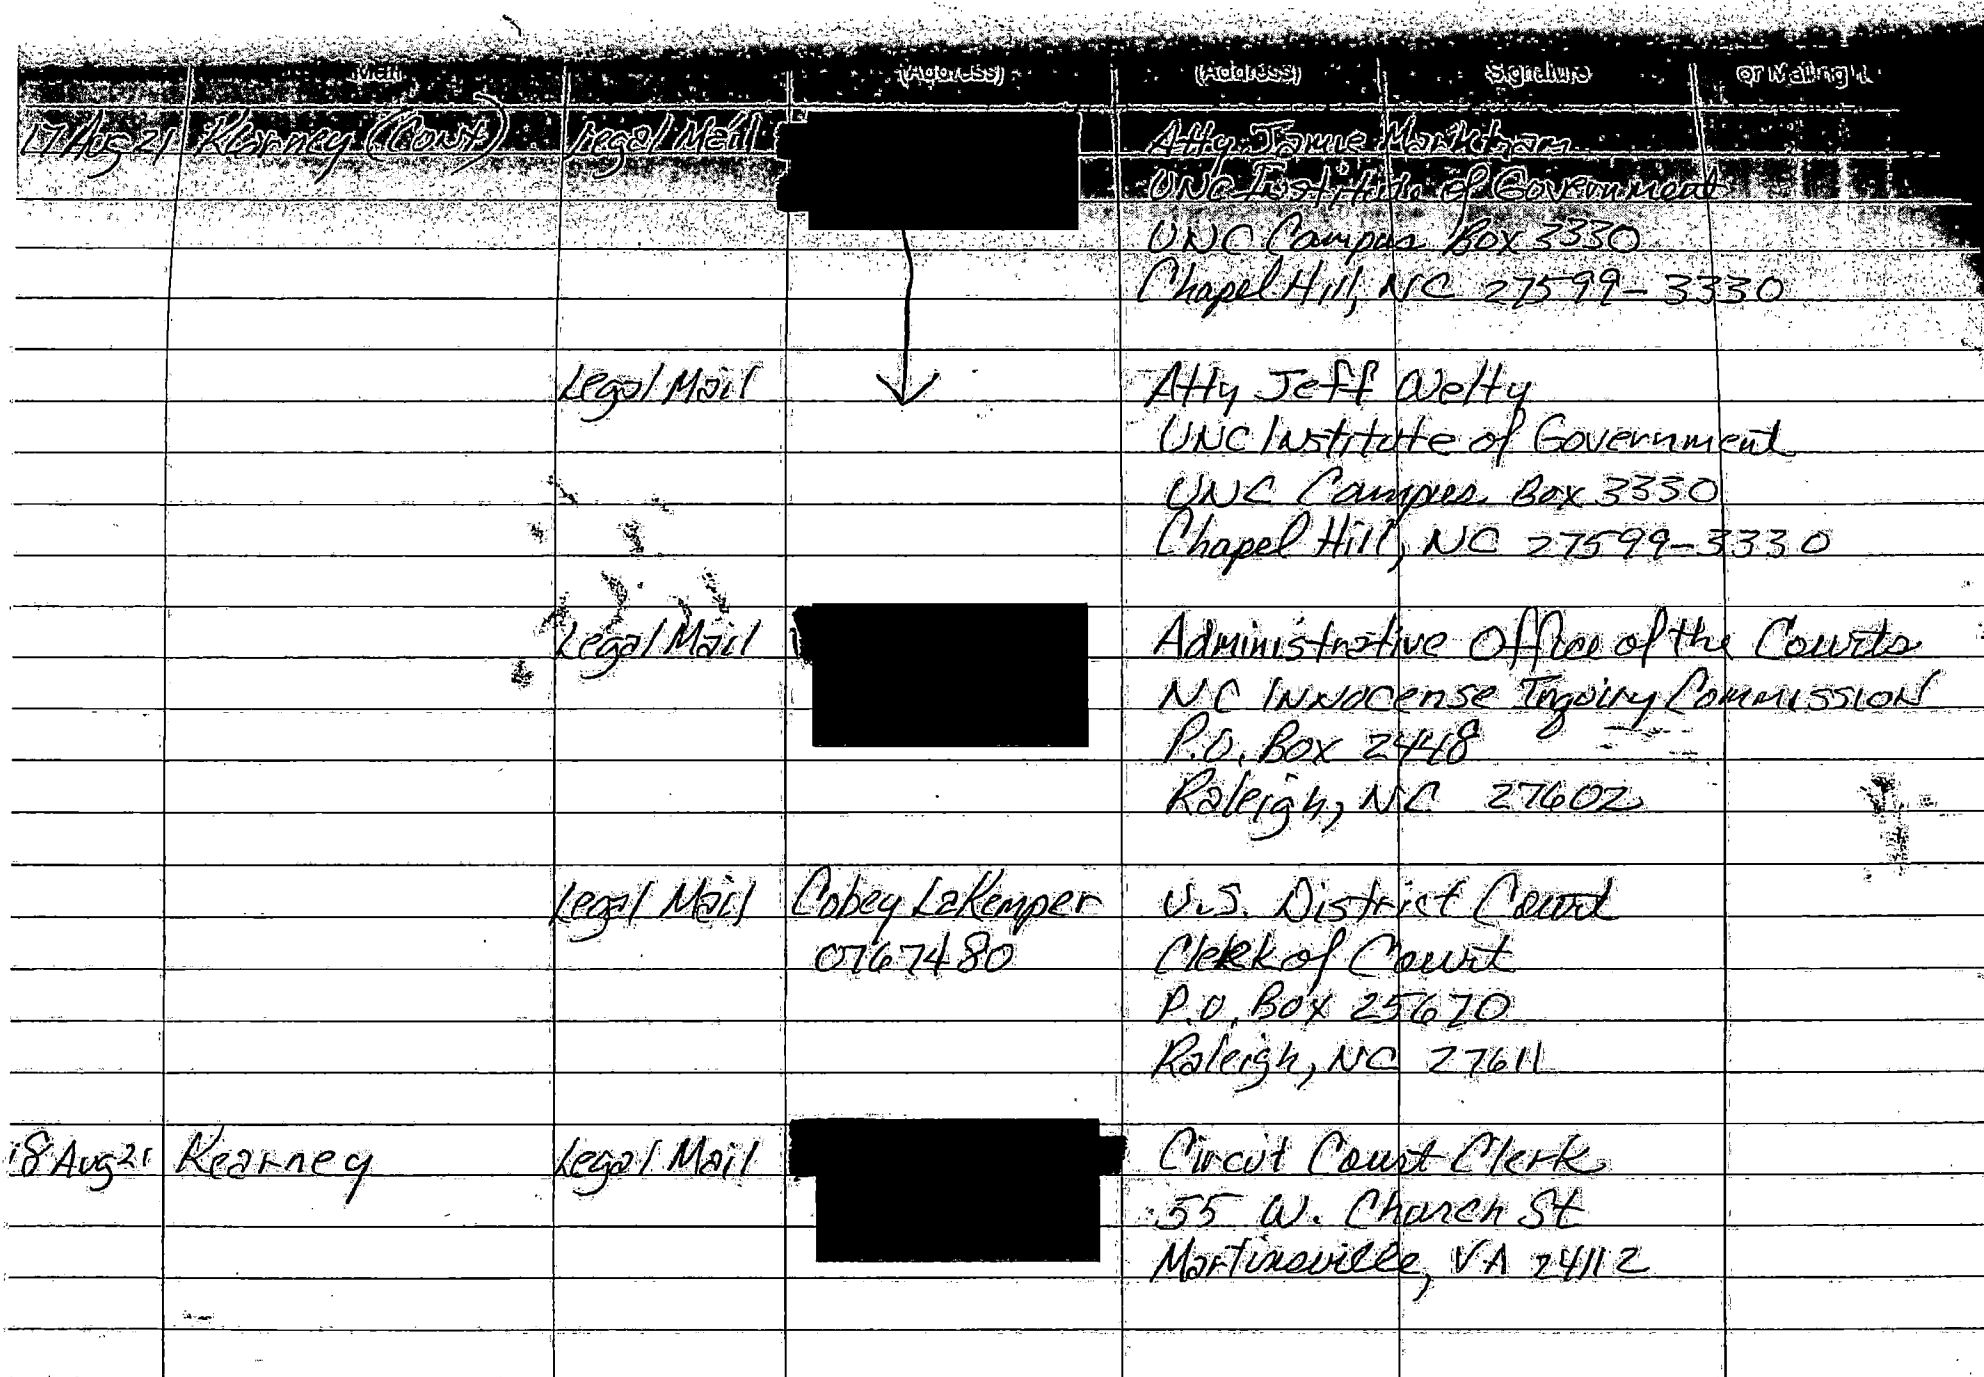 Mail (Address) (Address) Signature or Mailing
17 Aug 21 Kearney (Cont) Legal Mail Atty Jamie Markham
UNC Institute of Government
UNC Campus Box 3330
Chapel Hill, NC 27599-3330
Legal Mail Atty Jeff Welty
UNC Institute of Government
UNC Campus Box 3330
Chapel Hill, NC 27599-3330
Legal Mail Administrative Office of the Courts
NC Innocense Inquiry Commission
P.O. Box 2448
Raleigh, NC 27602
Legal Mail Cobey LaKemper U.S. District Court
0767480 Clerk of Court
P.O. Box 25670
Raleigh, NC 27611
18 Aug 21 Kearney Legal Mail Circut Court Clerk
55 W. Church St
Martinsville, VA 24112